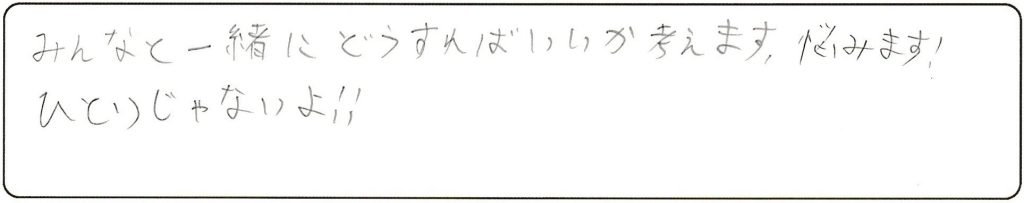 みんなと一緒にどうすればいいか考えます,悩みます!
ひとりじゃないよ!!